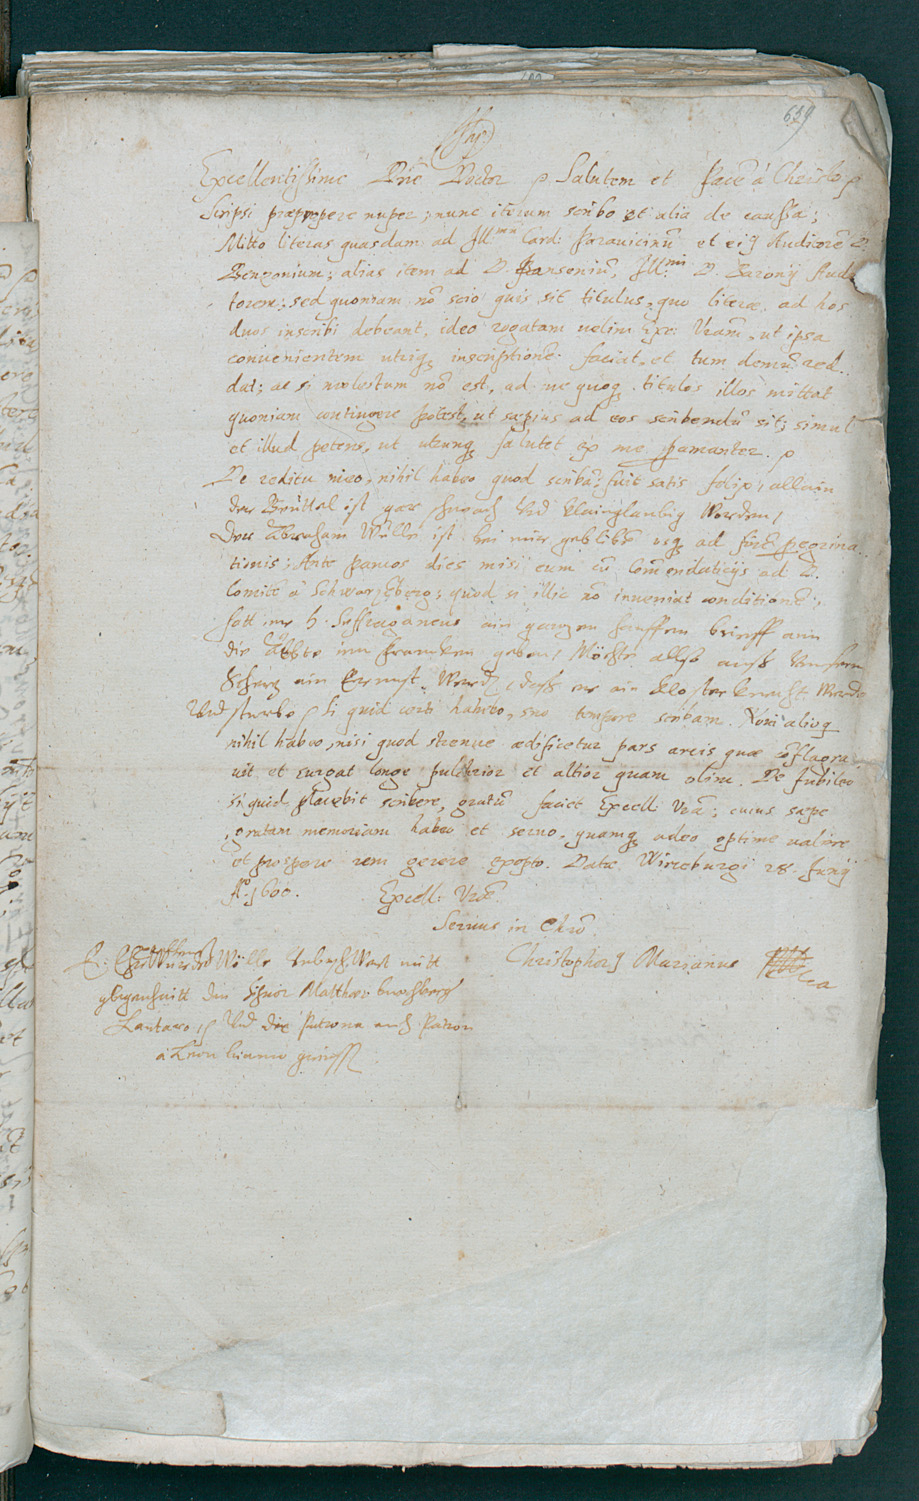 659
Excellentissime Dñe Doctor Salutem et pacẽ à Christo
Scripsi præpropere nuper; nunc iterum scribo et alia de caussa;
Mitto literas quasdam ad Ill.mum Card: Parauicinũ et eiꝰ Auditorẽ D.
Benzonium; alias item ad D. Jansoniũ, Ill.mi D. Baronij Audi
torem; sed quoniam nõ scio quis sit titulus, quo literæ ad hos
duos inscribi debeant, ideo rogatam uelim Exc: Vram, ut ipsa
conuenientem utriqȝ inscriptionẽ faciat, et tum demũ red
dat; ac si molestum nõ est, ad me quoqȝ titulos illos mittat
quoniam contingere potest, ut sæpius ad eos scribendũ sit; simul
et illud petens, ut utrunqȝ salutet ex me peramanter.
De reditu meo, nihil habeo quod scribã; fuit satis felix, allain
der Beuttel ist gar schwach Vnd klain worden,
Der Abraham Wölle ist bei mir gebliben usqȝ ad peregrina
tionis; Ante paucos dies misi eum cũ com̃endaticijs ad D.
Comitẽ à Schwarzẽberg; quod si illic nõ inueniat conditionẽ,
hatt mir H. Suffraganeus ain ganzen hauffen brieff ann
die Äbbte inn Francken geben, Möchte allso auß Vnserm
Scherz ain Ernnst Werdẽ, das er ain Closter knecht Werde
Vnd sterbe. Si quid certi habebo, suo tempore scribam. Noui alioqȝ
nihil habeo, nisi quod strenue ædificetur pars arcis quæ cõflagra
uit et surgat longe pulchrior et altior quam olim. De Jubileo
si quid placebit scribere, gratũ faciet Excell: Vrã; cuius sæpe
gratam memoriam habeo et seruo, quamqȝ adeo optime ualere
et prospere rem gerere exopto. Datæ Wirceburgi 28. Junij
Aº. 1600. Excell: Vræ
Seruus in Chrõ
Christophorꝰ Marianus
Wölle mitt
gelegenhaitt den Señor Matthæo
Vnd die Patrona auch Patron